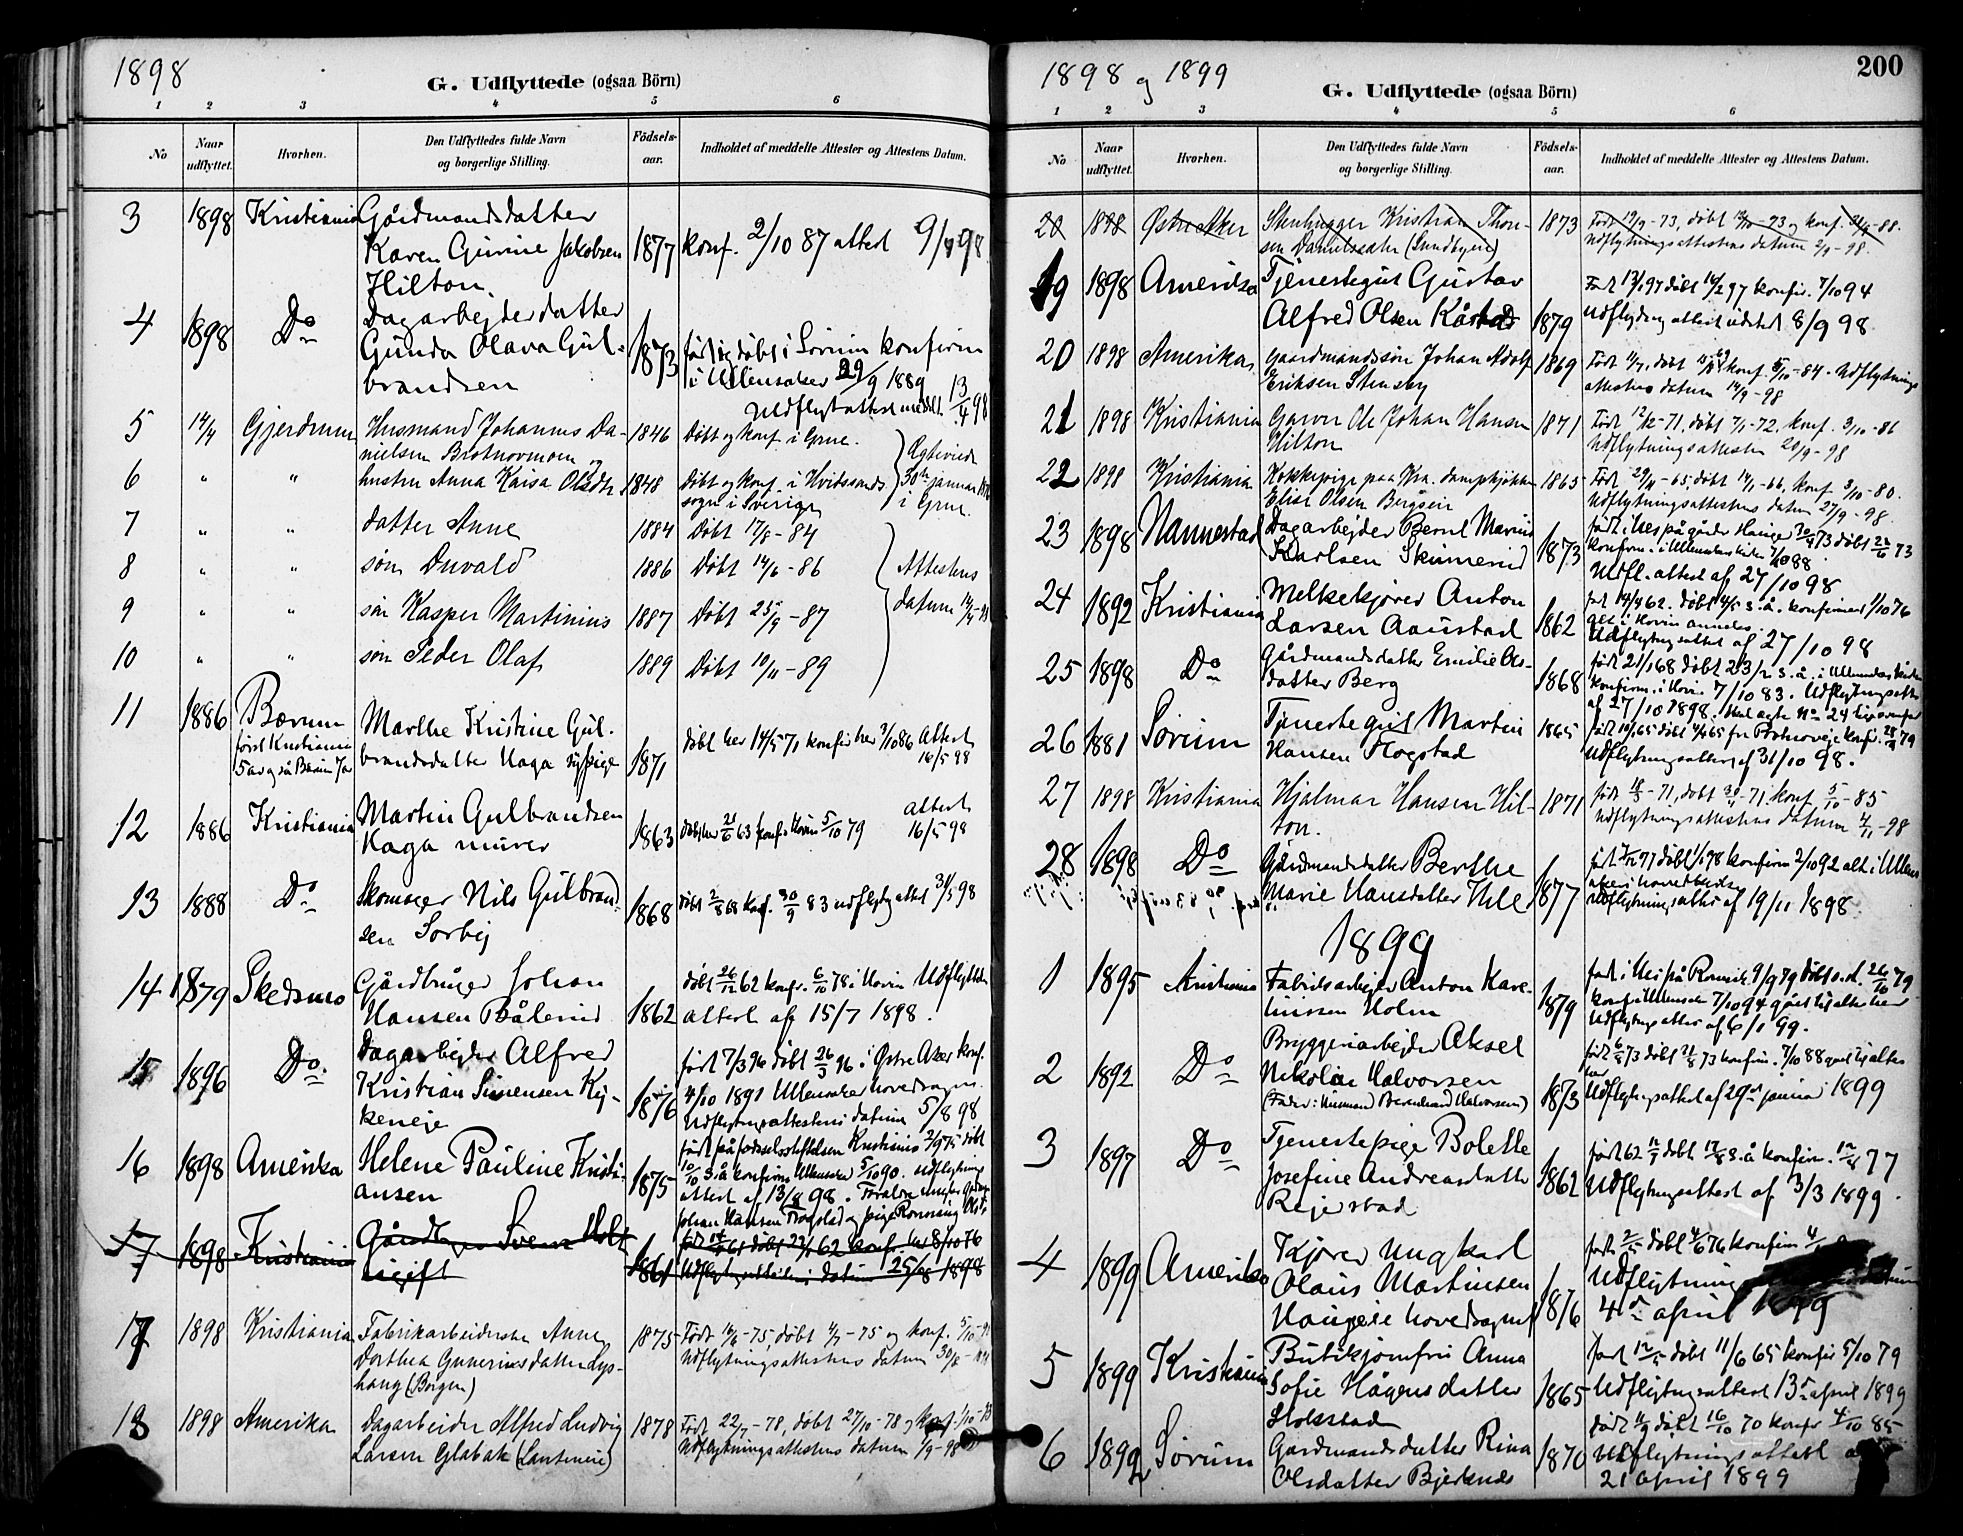 1898
G. Udflyttede (ogsaa Börn)
1 2 3 4 5 6
No
Naar udflyttet.
Hvorhen.
Den Udflyttedes fulde Navn og borgerlige Stilling.
Födsels-aar.
Indholdet af meddelte Attester og Attestens Datum.
3 1898 Kristiania Gårdmandsdatter
Karen Gurine Jakobsen 1877 konf. 2/10 87 attest 9/ 98
Hilton
4 1898 Do Dagarbejderdatter
Gunda Olava Gul- 1873 født og døbt i Sørum konfirm
brandsen i Ullensaker 29/9 1889
Udflytattest meddelt 13/4 98
5 14/4 Gjerdrum Husmand Johannes Da- 1846 Døbt og konf. i Grue.
nielsen og Ægteviede
6 " " hustru Anna Kaisa Olsdtr 1848 Døbt og konf. i 30te januar
sogn i Sverige i Grue.
7 " " datter Anne 1884 Døbt 17/8 - 84
8 " " søn Duvald 1886 Døbt 14/6 - 86 Attestens
9 " " søn Kasper Martinius 1887 Døbt 25/9 - 87 datum 14/4-98
10 " " søn Peder Olaf 1889 Døbt 10/11 - 89
11 1886 Bærum Marthe Kristine Gul-
først Kristiania brandsdatter Haga sypige 1871 døbt her 14/5 71 konfir her 3/10 86 Attest
5 år og så Bærum 16/5 98
12 1886 Kristiania Martin Gulbrandsen attest
Haga murer 1863 døbt her 21/6 63 konfir Hovin 5/10 79 16/5 98
13 1888 Do Skomager Nils Gulbrand-
sen Sørby 1868 døbt 2/8 68 konf. 30/9 83 udflytg attest 31/5 98
14 1879 Skedsmo Gårdbruger Johan døbt 26/12 62 konfr. 6/10 78 i Hovin Udflyttet
Hansen Bålerud 1862 attest af 15/7 1898.
15 1896 Do Dagarbejder Alfred født 7/3 76 døbt 26/3 76 i Østre Aker konf.
Kristian Simensen Ky- 1876 4/10 1891 Ullensaker hovedsogn.
keneje Udflytngsattestens datum 5/8 98
16 1898 Amerika Helene Pauline Kristi- født på fødselsstiftelsen Kristiania 2/9 75 døbt
ansen 1875 10/10 s.å konfirm Ullensaker 5/10 90. udflytning
attest af 13/8 98. Forældre
Johan Hansen Trøgstad og pige
17 1898 Kristiania Gårdbr. Svenn Holt
ugift 1861 Udflytngsattestens datum 25/8 1898
17 1898 Kristiania Fabrikarbeiderske Anne 1875 Født 16/6-75, døbt 4/7-75 og konf. 5/10-90
Dorthea Gunerius datter Lys- Udflytningsattestens datum 30/8-1898
haug (Borgen)
18 1898 Amerika Dagarbeider Alfred Ludvig 1878 Født 22/7-78, døbt 27/10-78 og konf. 1/10-93
Larsen Glabak Udflytningsattestens datum 1/9-98
1898 og 1899
200
G. Udflyttede (ogsaa Börn)
1 2 3 4 5 6
No
Naar udflyttet.
Hvorhen.
Den Udflyttedes fulde Navn og borgerlige Stilling.
Födsels-aar.
Indholdet af meddelte Attester og Attestens Datum.
20 1898 Østre Aker Stenhugger Kristian Thor- 1873 Født 19/9-73, døbt -73 og konf. -88.
sen (Lundbyen) Udflytningsattestens datum 2/9-98.
19 1898 Amerika Tjenestegut Gustav Født 13/1 97 døbt 14/2 97 konfir. 7/10 94
Alfred Olsen Kåstad 1879 Udflytng attest udstedt 8/9 98.
20 1898 Amerika Gaardmandssøn Johan Adolf 1869 Født 11/7, døbt konf. 5/10-84. Udflytnings
Eriksen Stensby attestens datum 14/9-98
21 1898 Kristiania Garver Ole Johan Hansen 1871 Født 12/12-71, døbt 7/1-72, konf. 3/10-86
Hilton Udflytningsattesten 20/9-98
22 1898 Kristiania Kokkepige paa Kra. dampkjøkken 1865 Født 29/11-65, døbt 14/1-66, konf. 3/10-80.
Elise Olsen Udflytningsattestens datum 27/9-98
23 1898 Nannestad Dagarbejder Bernt Marius født i Nes på gården Hauger 30/4 73 døbt 22/6 73
Karlsen Skimerud 1873 konfirm. i Ullensaker 7/10 88.
Udfl. attest af 27/10 98
24 1892 Kristiania Melkekjører Anton født 14/4 62. døbt 4/5 s.å. konfirmert 1/10 76
Larsen Aaustad 1862 alt i Hovin annex.
Udflytng attest af 27/10 98
25 1898 Do Gårdmandsdatter Emilie Ols- født 21/1 68 døbt 23/2 s.å. i Ullensaker kirke
datter Berg 1868 konfirm. i Hovin 7/10 83. Udflytngsattest
af 27/10 1898.
26 1881 Sørum Tjenestegut Martin 1865
Hansen Hogstad Udflytningsattest af 31/10 98.
27 1898 Kristiania Hjalmar Hansen Hil- 1871 født 18/3-71, døbt 30/4-71 konf 5/10-85
ton. Udflytningsattestens datum 4/11-98
28 1898 Do Gårdmandsdatter Berthe døbt 1/1 78 konfirm 2/10 92 alt i Ullens
Marie Hansdatter Hile 1877 aker hovedkirke
Udflytningsattest af 19/11 1898.
1899
1 1895 Kristiania Fabrikarbejder Anton Kare- født i Nes på Romerike 9/9 79 døbt s.st. 26/10 79
liussen Holm 1879 konf. Ullensaker 7/10 94
Udflytngs attest af 6/1 99.
2 1892 Do Bryggeriarbejder Aksel født 6/8 73 døbt 21/8 73 konfirm. 7/10 88
Nikolai Halvorsen her
(Fader: Husmand Halvorsen) 1873 Udflytngsattest af 29de januar 1899
3 1897 Do Tjenestepige Bolette
Josefine Andreasdatter født 62 døbt 17/8 s.å konfirm. 77
Rejerstad 1862 Udflytngsattest af 3/3 1899.
4 1899 Amerika Kjører Ungkarl født døbt 4/6 76 konfirm
Olaus Martinsen Udflytnings datum
hovedsognet 1876 4de april 1899
5 1899 Kristiania Butikjomfru Anna født døbt 11/6 65 konfir 5/10 79
Sofie Hågensdatter 1865 Udflytngsattest 13de april 1899
Holkstad
6 1899 Sørum Gårdmandsdatter Rina 1870 født døbt 16/10 70 konfir 4/10 85
Olsdatter Udflytnings attest
21 April 1899